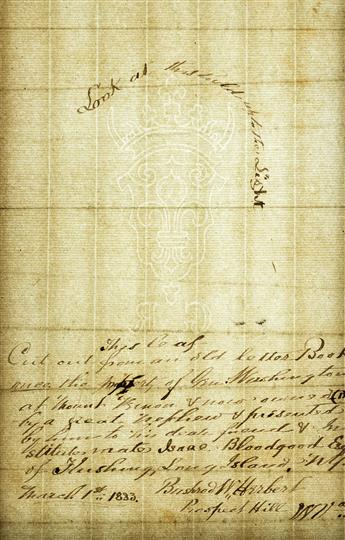 Look at this held up to the Light
This leaf
Cut out from an old letter Book
once the property of Gen. Washington
at Mount Vernon & now owned
by a great Nephew & presented
by him to his dear friend &
mate Isaac Bloodgood Esq
of Flushing, Long Island, N.Y.
March 1st 1833. Bushrod W. Herbert
Prospect Hill